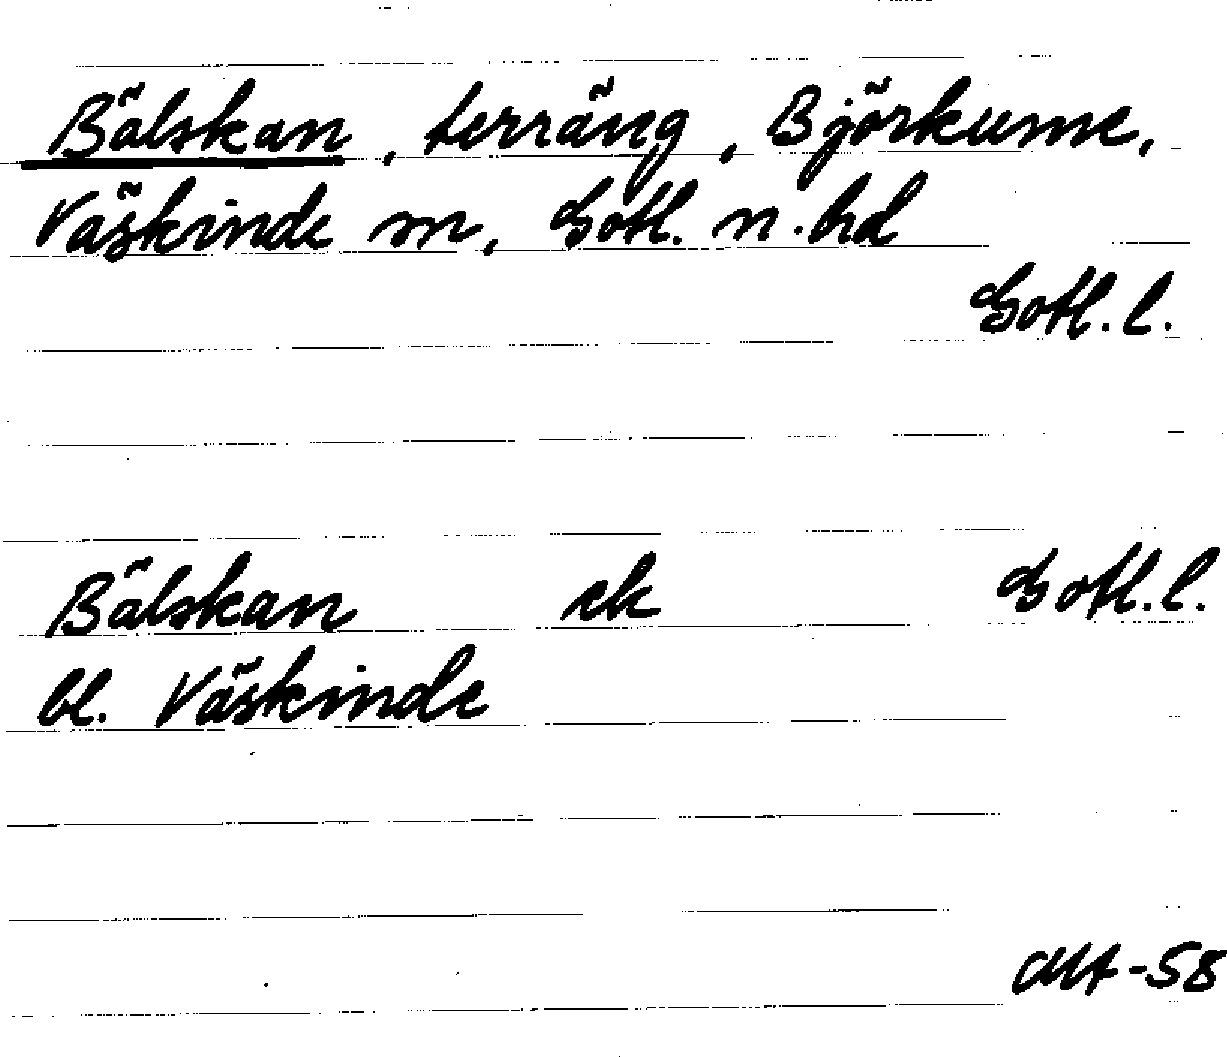 Bälskan, terräng, Björkume,
Väskinde sn, Gotl. n. hd
Gotl. l.
Bälskan ek Gotl. l.
bl. Väskinde
-58